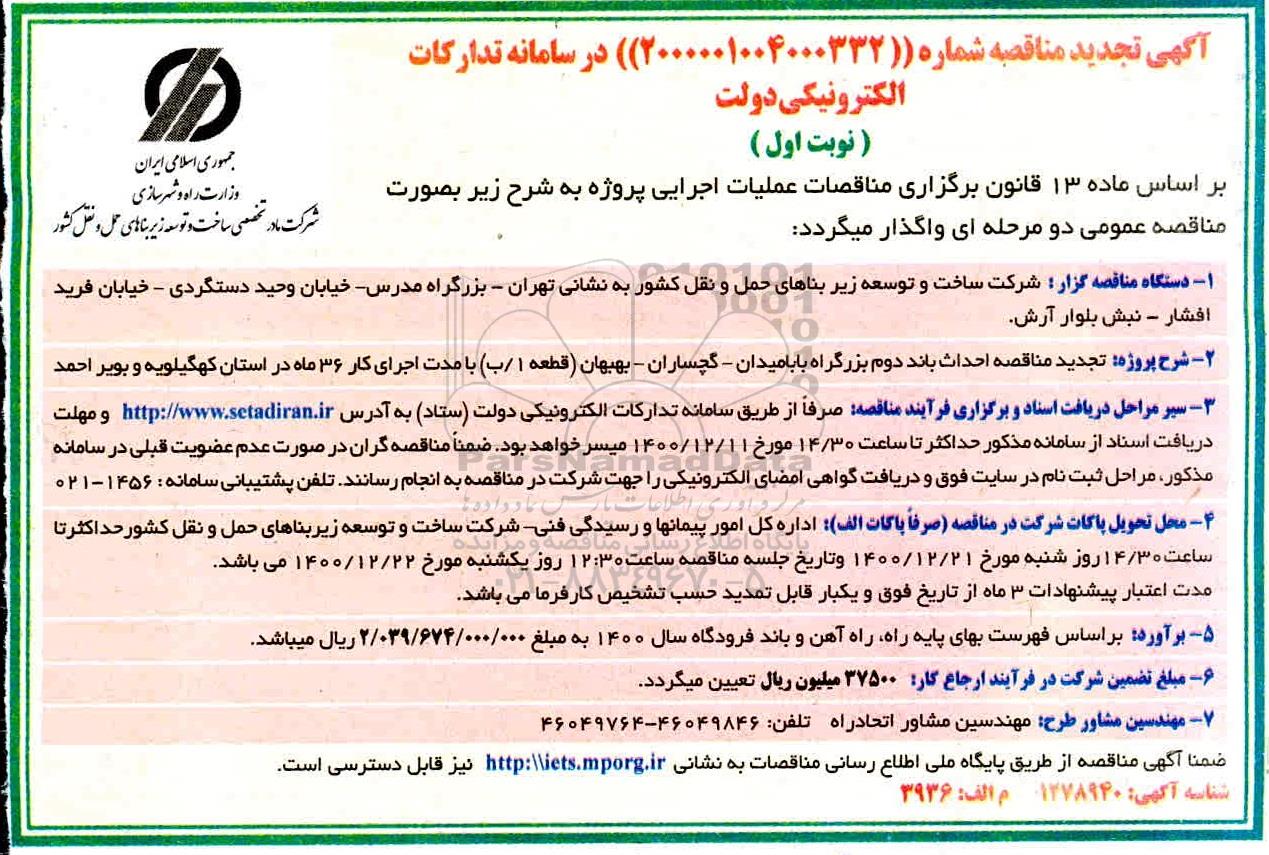 آگهی تجدید مناقصه شماره ((۲۰۰۰۰۰۱۰۰۴۰۰۰۳۳۲)) در سامانه تدارکات
الکترونیکی دولت
( نوبت اول )
جمهوری اسلامی ایران
وزارت راه و شهرسازی
شرکت مادر تخصصی ساخت و توسعه زیربناهای حمل و نقل کشور
بر اساس ماده ۱۳ قانون برگزاری مناقصات عملیات اجرایی پروژه به شرح زیر بصورت
مناقصه عمومی دو مرحله ای واگذار میگردد:
۱- دستگاه مناقصه گزار : شرکت ساخت و توسعه زیر بناهای حمل و نقل کشور به نشانی تهران - بزرگراه مدرس- خیابان وحید دستگردی - خیابان فرید
افشار - نبش بلوار آرش.
۲- شرح پروژه: تجدید مناقصه احداث باند دوم بزرگراه بابامیدان - گچساران - بهبهان (قطعه ۱/ب) با مدت اجرای کار ۳۶ ماه در استان کهگیلویه و بویر احمد
۳- سیر مراحل دریافت اسناد و برگزاری فرآیند مناقصه: صرفاً از طریق سامانه تدارکات الکترونیکی دولت (ستاد) به آدرس http://www.setadiran.ir و مهلت
دریافت اسناد از سامانه مذکور حداکثر تا ساعت ۱۴/۳۰ مورخ ۱۴۰۰/۱۲/۱۱ میسر خواهد بود. ضمناً مناقصه گران در صورت عدم عضویت قبلی در سامانه
مذکور، مراحل ثبت نام در سایت فوق و دریافت گواهی امضای الکترونیکی را جهت شرکت در مناقصه به انجام رسانند. تلفن پشتیبانی سامانه : ۱۴۵۶-۰۲۱
۴- محل تحویل پاکات شرکت در مناقصه (صرفاً پاکات الف): اداره کل امور پیمانها و رسیدگی فنی- شرکت ساخت و توسعه زیربناهای حمل و نقل کشور حداکثر تا
ساعت ۱۴/۳۰ روز شنبه مورخ ۱۴۰۰/۱۲/۲۱ وتاریخ جلسه مناقصه ساعت ۱۲:۳۰ روز یکشنبه مورخ ۱۴۰۰/۱۲/۲۲ می باشد.
مدت اعتبار پیشنهادات ۳ ماه از تاریخ فوق و یکبار قابل تمدید حسب تشخیص کارفرما می باشد.
۵- برآورد: براساس فهرست بهای پایه راه، راه آهن و باند فرودگاه سال ۱۴۰۰ به مبلغ ۲/۰۳۹/۶۷۴/۰۰۰/۰۰۰ ریال میباشد.
۶- مبلغ تضمین شرکت در فرآیند ارجاع کار: ۳۷۵۰۰ میلیون ریال تعیین میگردد.
۷- مهندسین مشاور طرح: مهندسین مشاور اتحادراه تلفن: ۴۶۰۴۹۸۴۶-۴۶۰۴۹۷۶۴
ضمنا آگهی مناقصه از طریق پایگاه ملی اطلاع رسانی مناقصات به نشانی http:\\iets.mporg.ir نیز قابل دسترسی است.
شناسه آگهی: ۱۲۷۸۹۴۰ م الف: ۳۹۳۶
ParsNamadData
مرکز فرآوری اطلاعات پارس نماد داده ها
پایگاه اطلاع رسانی مناقصه و مزایده
۰۲۱-۸۸۳۴۹۶۷۰-۵